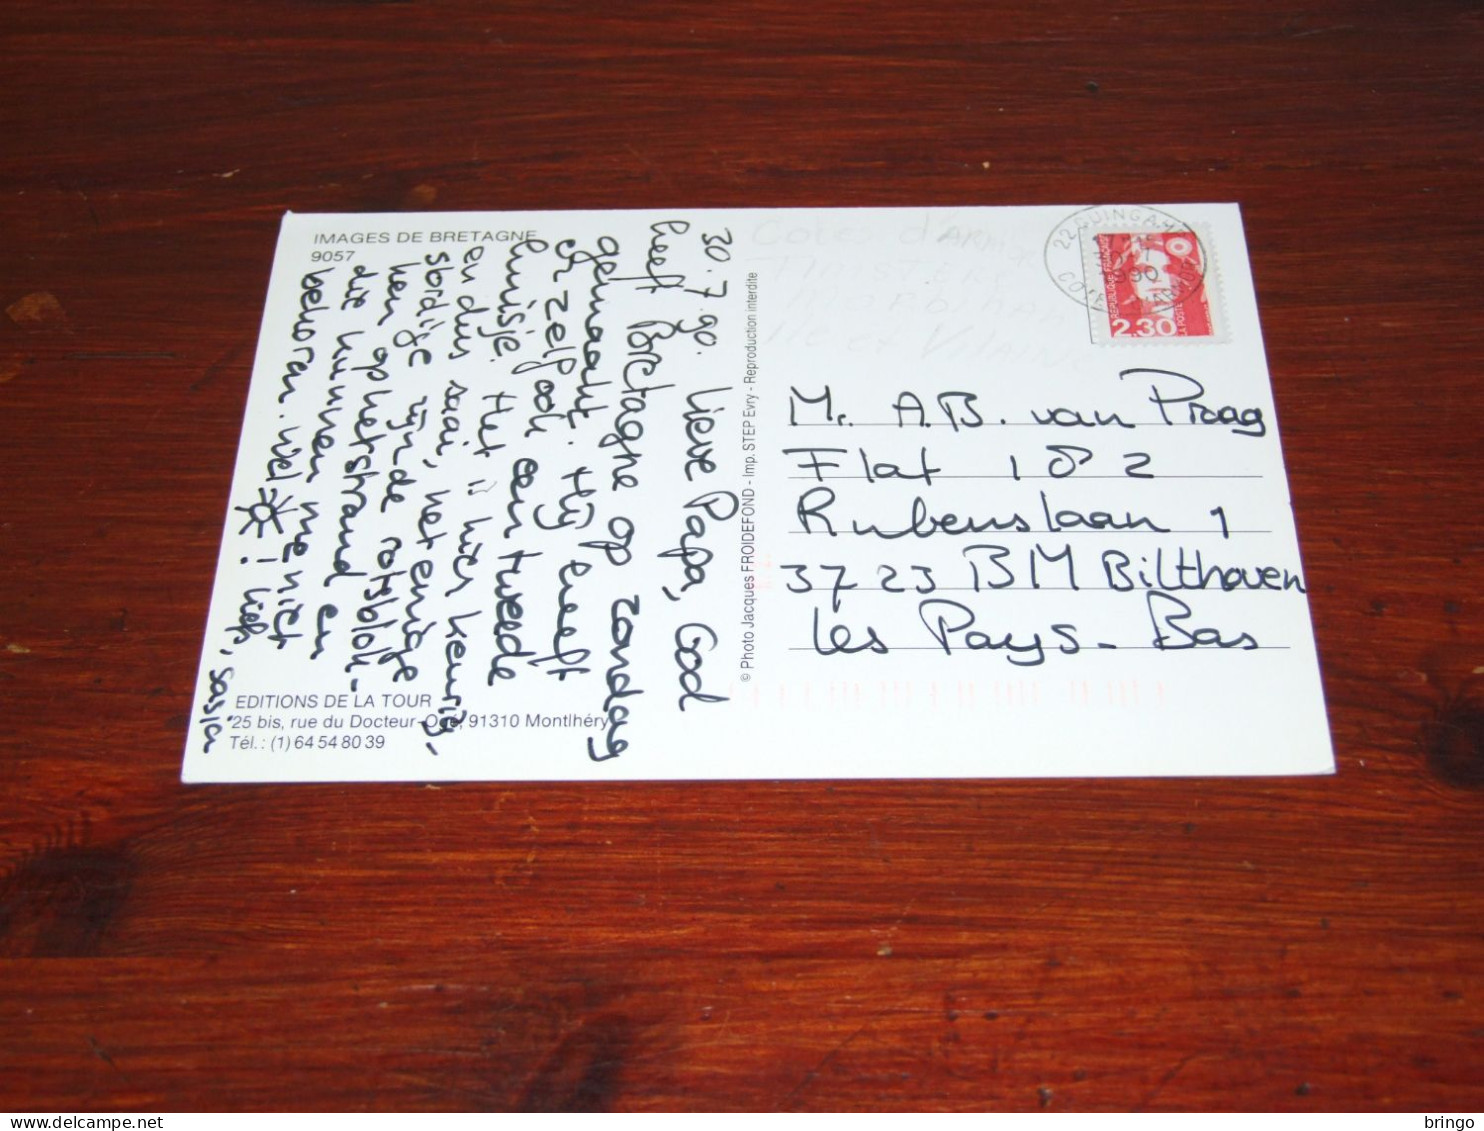 IMAGES DE BRETAGNE
9057
30.7.90. Lieve Papa, God
heeft Bretagne op zondag
gemaakt. Hij heeft
er zelf ook een tweede
huisje. Het is hier keurig
en dus saai, het enige
stordige zijnde rotsblok-
ken op het strand en
die kunnen me niet
bekoren. Wel ☀! liefs, Saskia
EDITIONS DE LA TOUR
25 bis, rue du Docteur-Ogé, 91310 Montlhéry
Tél. : (1) 64 54 80 39
© Photo Jacques FROIDEFOND - Imp. STEP Evry - Reproduction interdite
22 GUINGAMP
90
REPUBLIQUE FRANÇAISE
2,30
LA POSTE
Mr. A.B. van Praag
Flat 182
Rubenslaan 1
3723 BM Bilthoven
Les Pays-Bas
Cotes d'Armor
Finistere
Morbihan
Ille et Vilaine
bringo